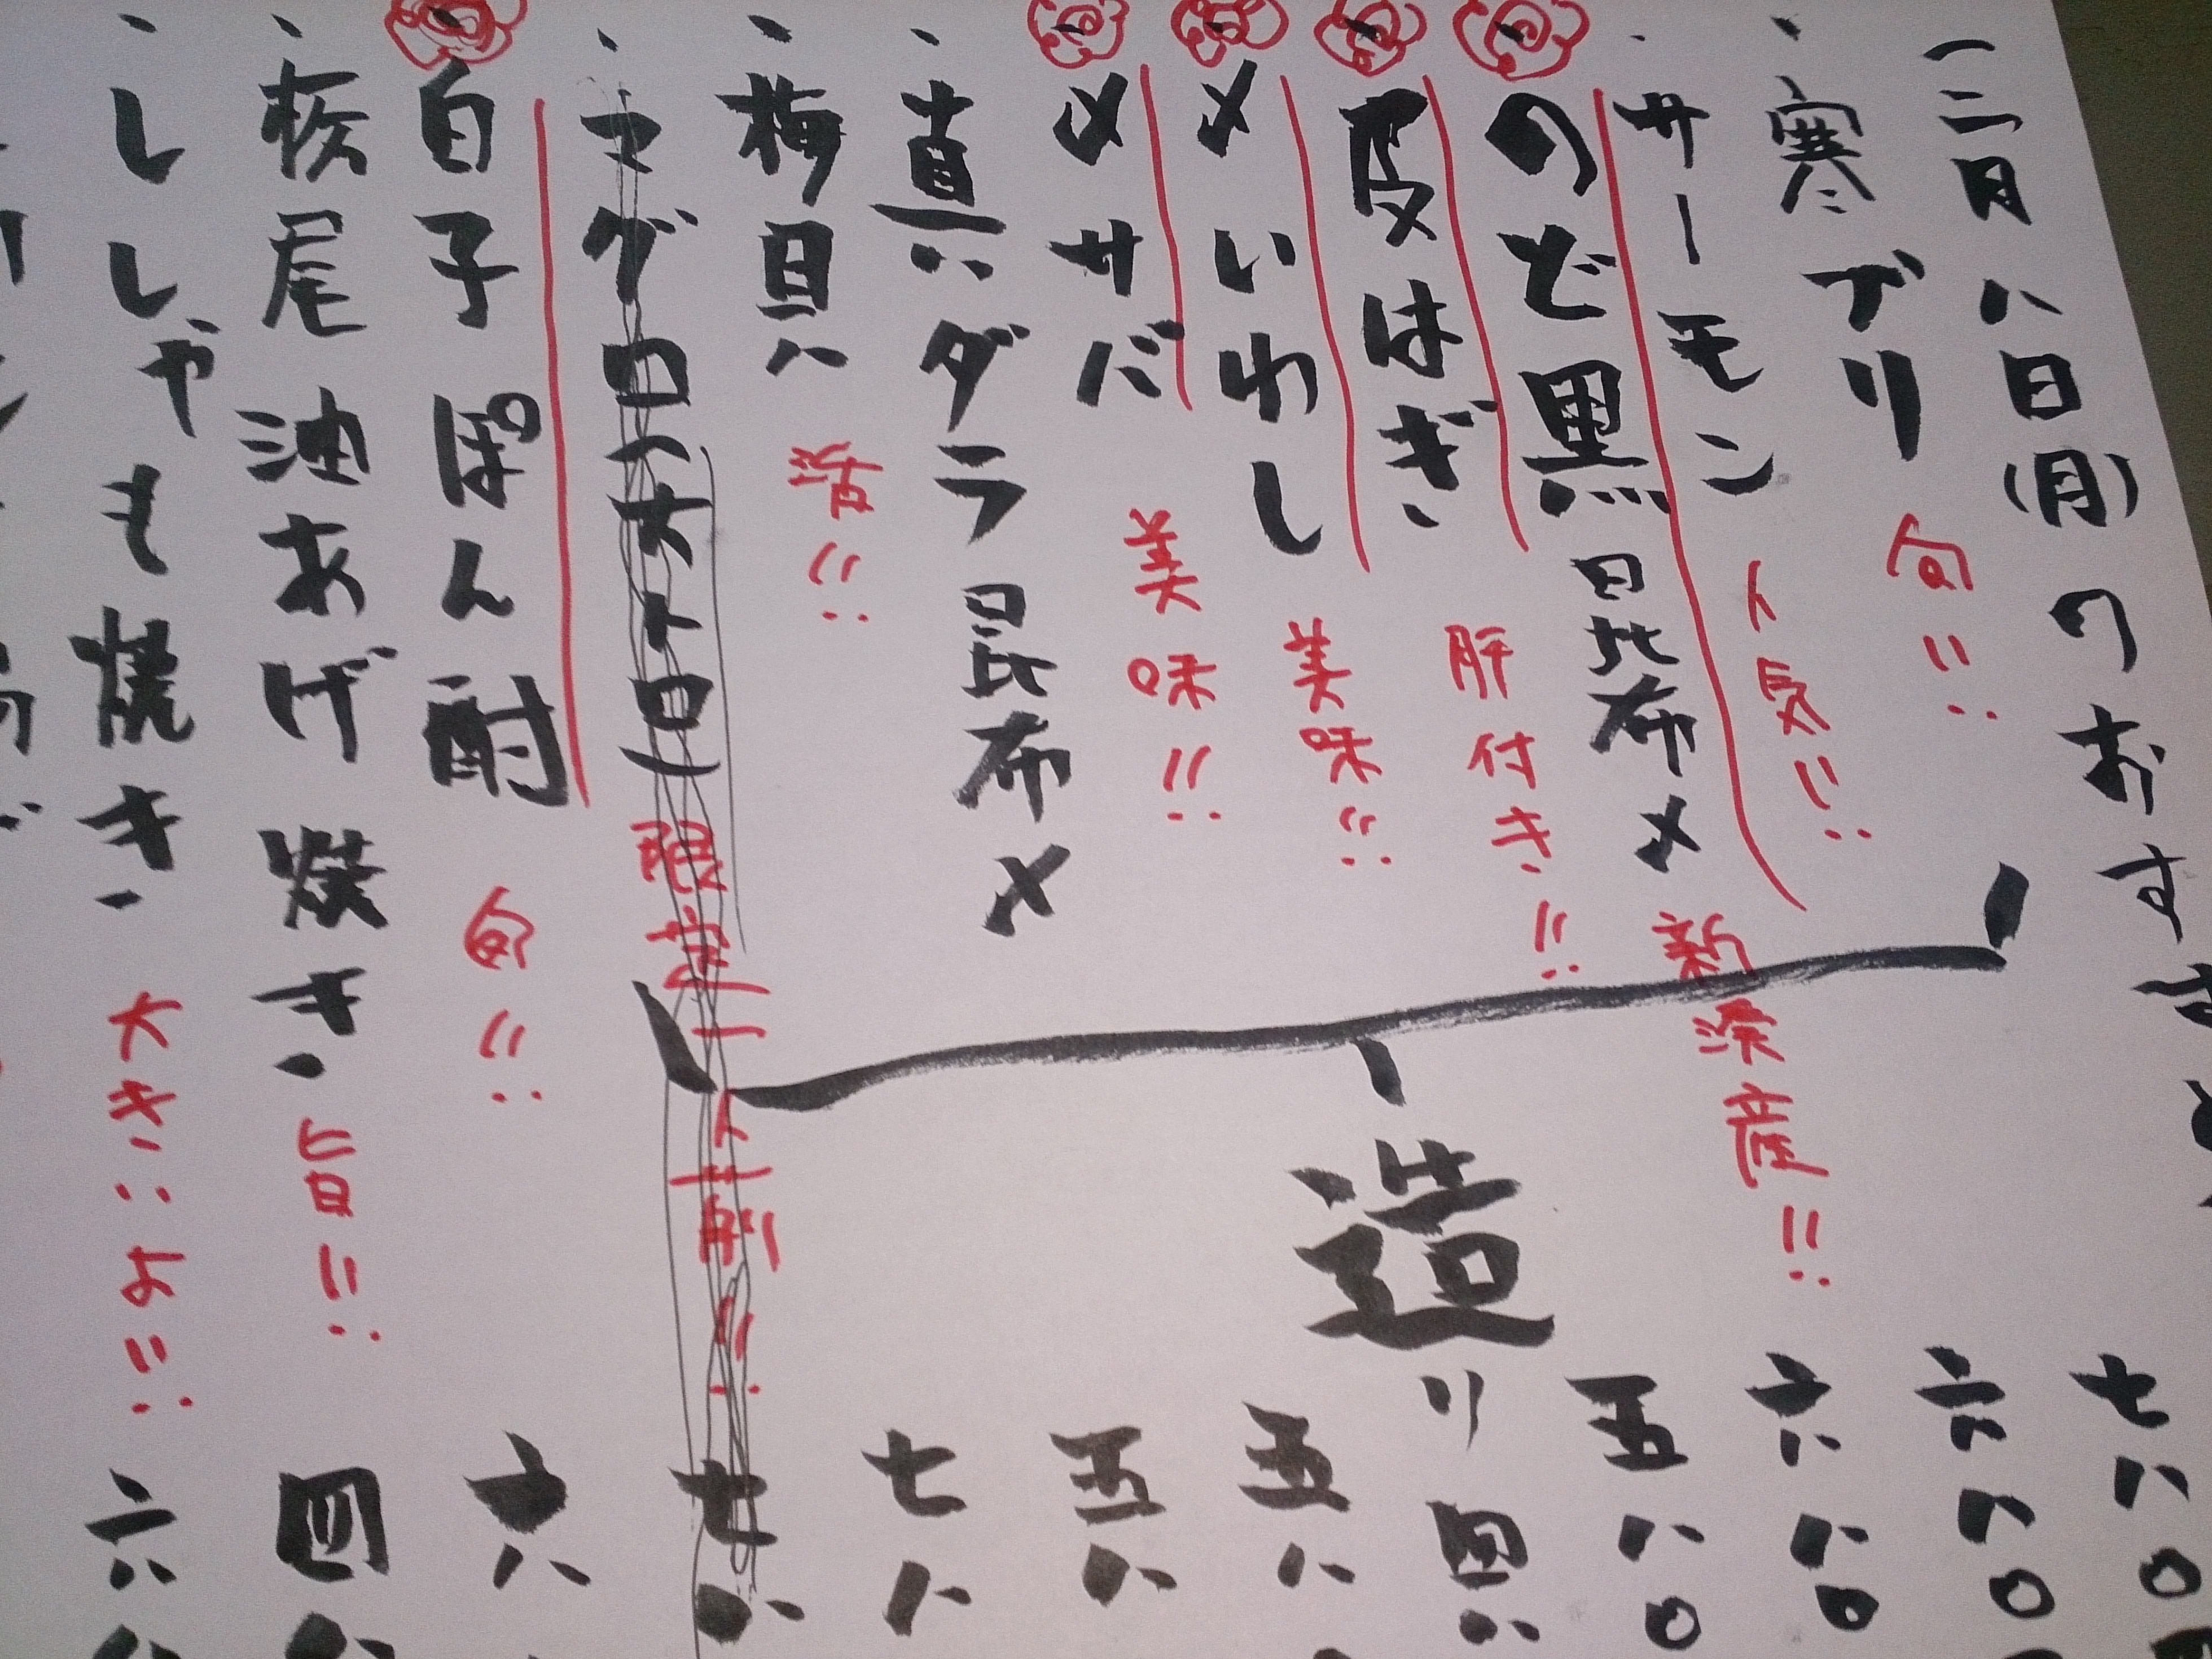 一二月八日(月)のおすす
・寒ブリ 旬!! 七八〇
・サーモン 人気!! 六八〇
・のど黒昆布〆 新湊産!! 六八〇
・皮はぎ 肝付き!! 五八〇
・〆いわし 美味!! 四八
造り
・〆サバ 美味!! 五八
・真ダラ昆布〆 五八
・梅貝 活!! 七八
・マグロ(大トロ) 限定一人前!! 七八
・白子ぽん酢 旬!! 六八
・栃尾油あげ焼き 旨!! 四八
・ししゃも焼き 大きいよ!! 六八